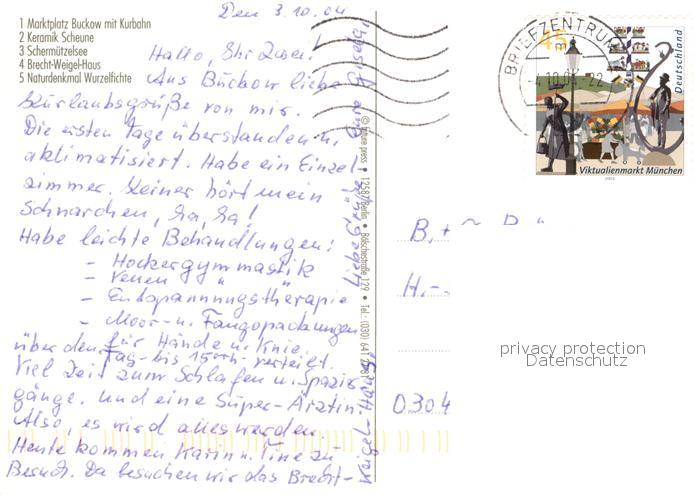 1 Marktplatz Buckow mit Kurbahn
2 Keramik Scheune
3 Schermützelsee
4 Brecht-Weigel-Haus
5 Naturdenkmal Wurzelfichte
Den 3.10.04
Hallo, Ihr Zwei!
Aus Buckow liebe
Kurlaubsgrüße von mir.
Die ersten Tage überstanden u.
aklimatisiert. Habe ein Einzel-
zimmer. Keiner hört mein
Schnarchen, ha, ha!
Habe leichte Behandlungen:
- Hockergymnastik
- Venen "
- Entspannungstherapie
- Moor- u. Fangopackungen
für Hände u. Knie.
über den Tag - bis 15 00h - verteilt.
Viel Zeit zum Schlafen u. Spazier-
gänge. Und eine Super-Ärztin.
Also, es wird alles werden.
Heute kommen Karin u. Tine zu
Besuch. Da besuchen wir das Brecht-
Weigel-Haus.
Liebe Grüße Eure Gisela
press • 12587 Berlin • Bölschestraße 129 • Tel.: (030) 641
BRIEFZENTRUM
10.04-22
45
Deutschland
Viktualienmarkt München
B.+
H.-
0304
privacy protection
Datenschutz